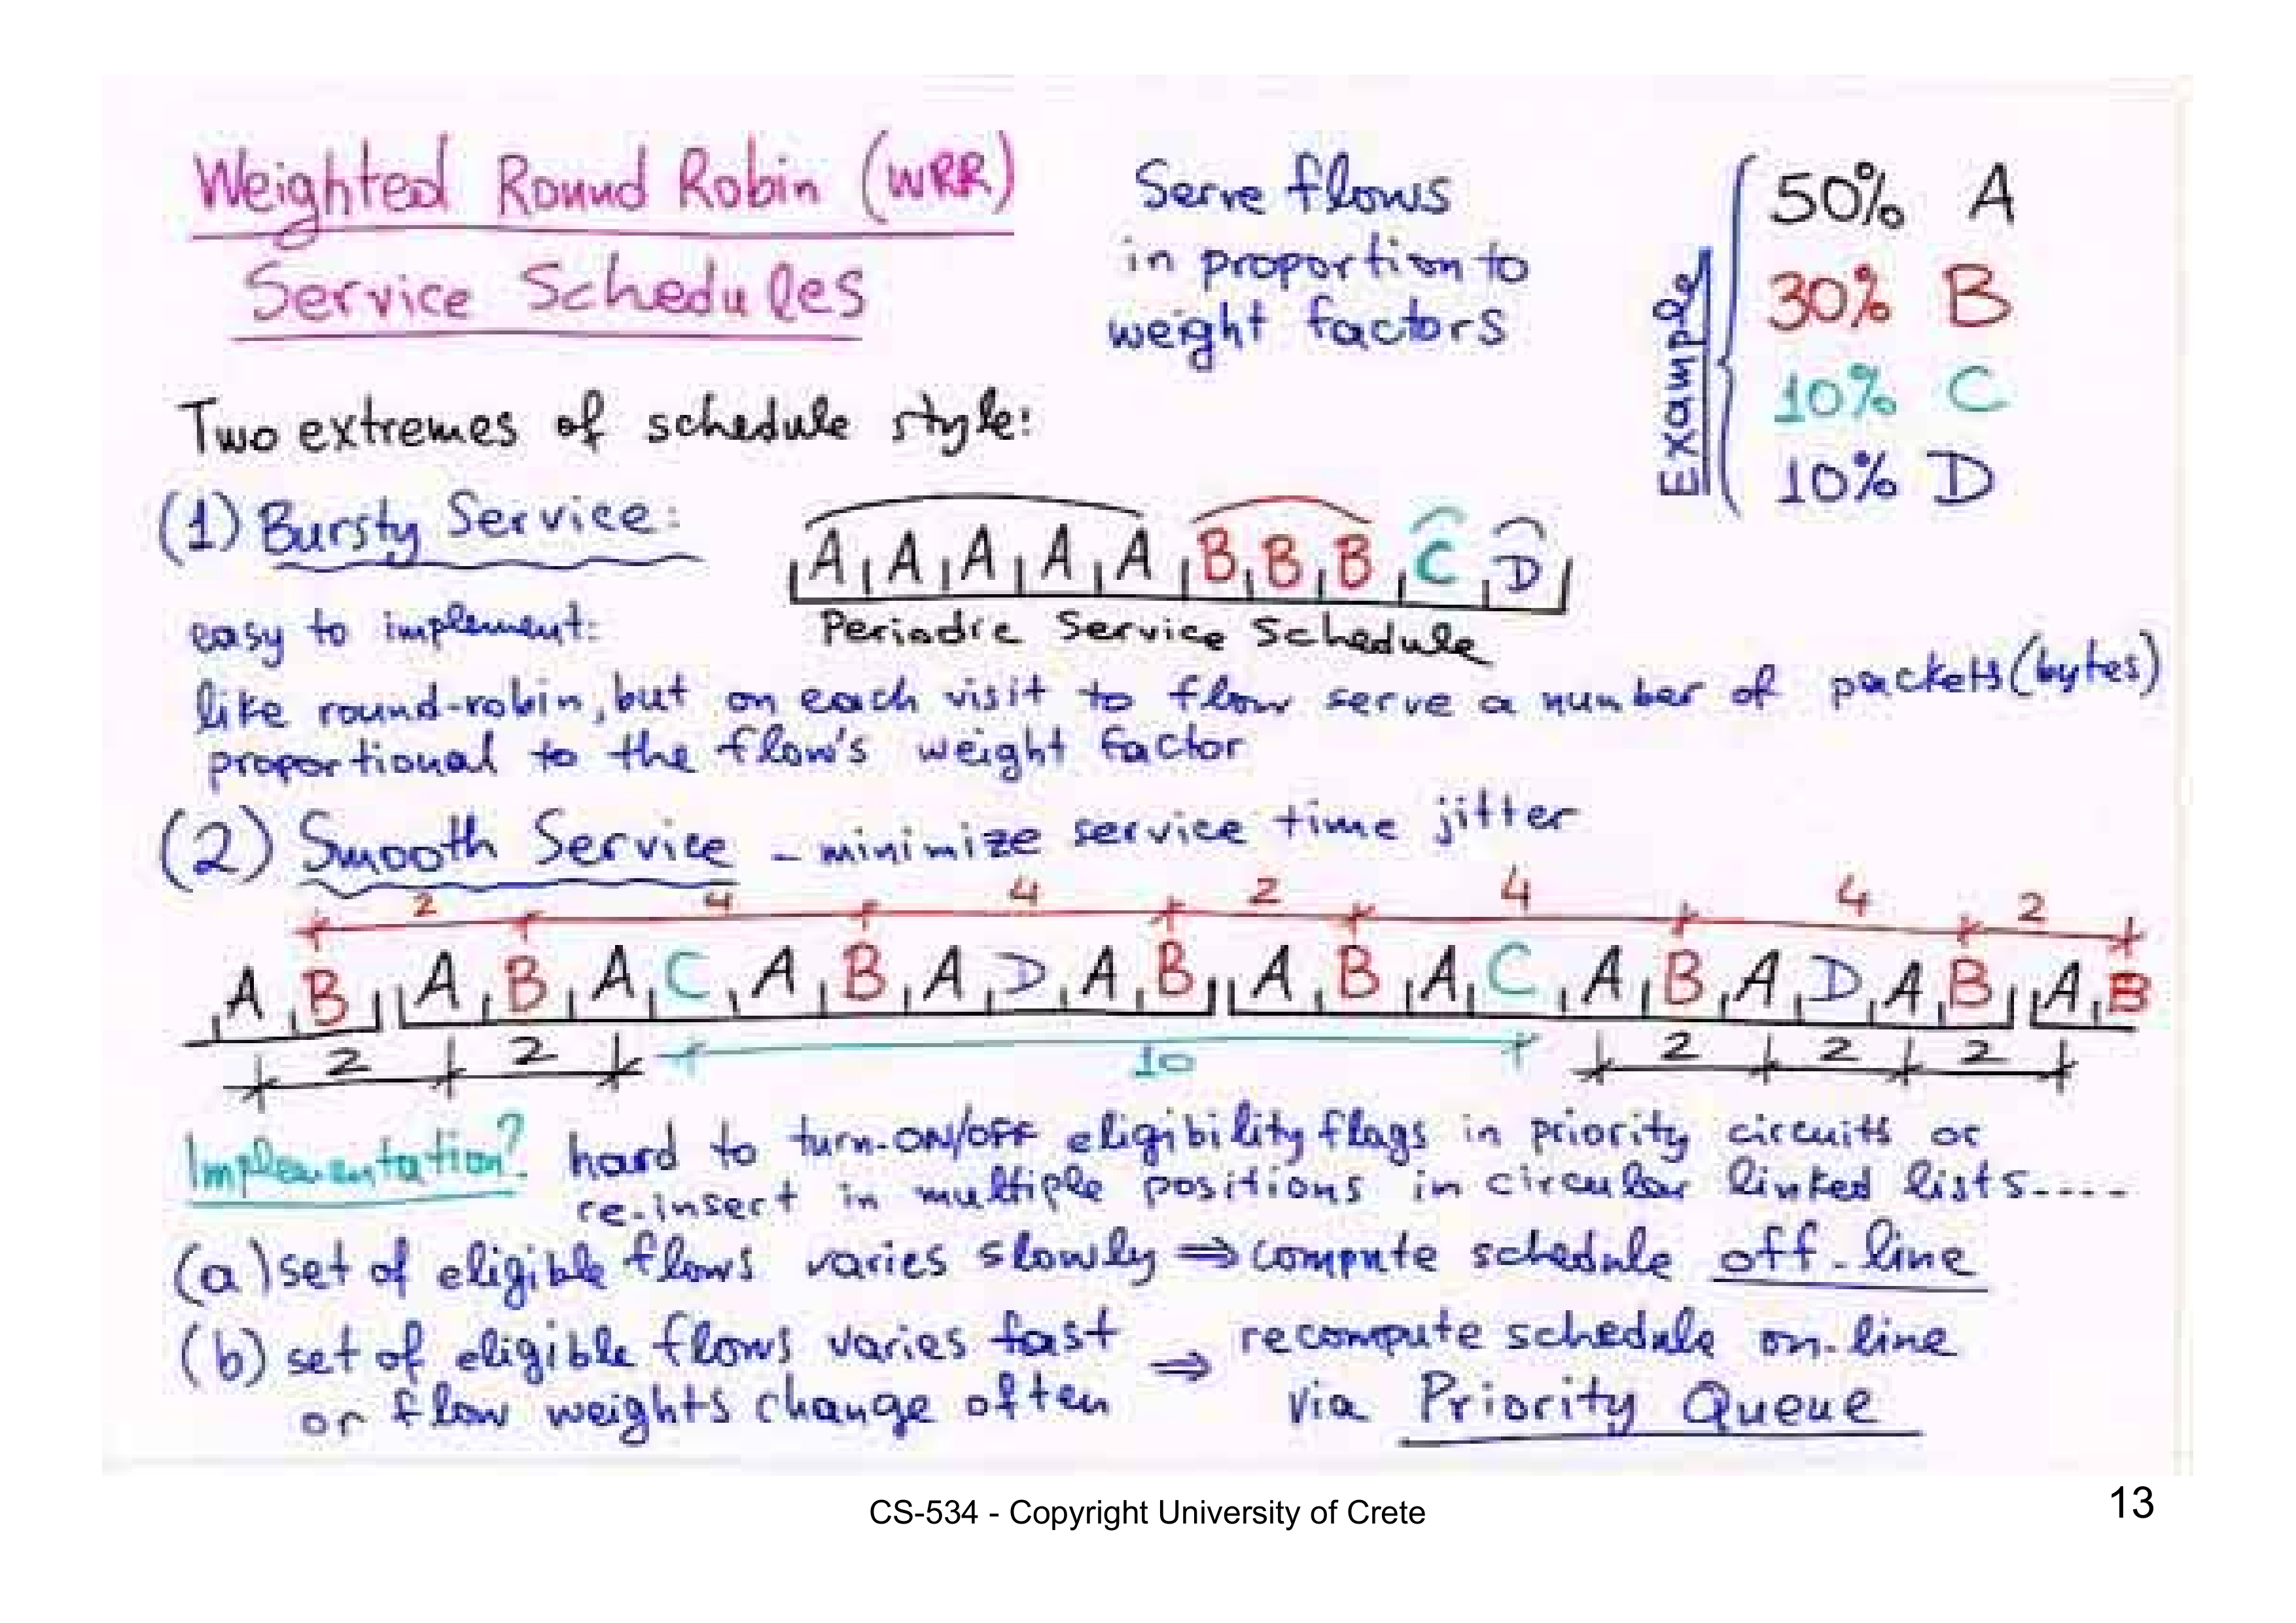 Weighted Round Robin (WRR)
Service Schedules
Serve flows
in proportion to
weight factors
Example
50% A
30% B
10% C
10% D
Two extremes of schedule style:
(1) Bursty Service:
A A A A A B B B C D
Periodic Service Schedule
easy to implement:
like round-robin, but on each visit to flow serve a number of packets (bytes)
proportional to the flow's weight factor
(2) Smooth Service - minimize service time jitter
2 4 4 2 4 4 2
A B A B A C A B A D A B A B A C A B A D A B A B
2 2 10 2 2 2
Implementation? hard to turn-ON/OFF eligibility flags in priority circuits or
re-insert in multiple positions in circular linked lists....
(a) set of eligible flows varies slowly ⇒ compute schedule off-line
(b) set of eligible flows varies fast
or flow weights change often
⇒ recompute schedule on-line
via Priority Queue
CS-534 - Copyright University of Crete
13